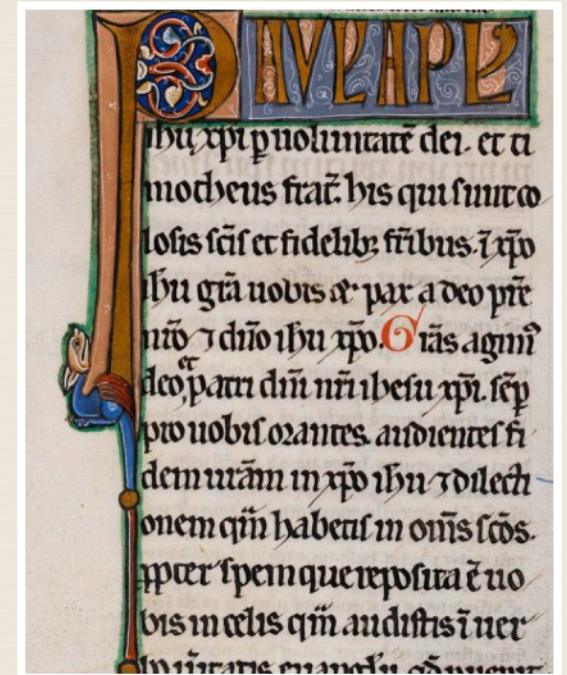 PAVL' APL'
ihu xpi p uoluntatē dei. et ti
motheus frat̄. his qui sunt co
losis sc̄is et fidelibꝫ fr̄ibus. ī xp̄o
ihu gr̄a uobis ⁊ pax a deo pr̄e
nr̄o ⁊ dn̄o ihu xp̄o. Gr̄as agimꝰ
deo et patri dn̄i nr̄i ihesu xp̄i. semꝑ
pro uobis orantes. audientes fi
dem ur̄am in xp̄o ihu ⁊ dilecti
onem qm̄ habetis in om̄s sc̄os.
ꝓpter spem que reposita ē uo
bis in celis qm̄ audistis ī uer